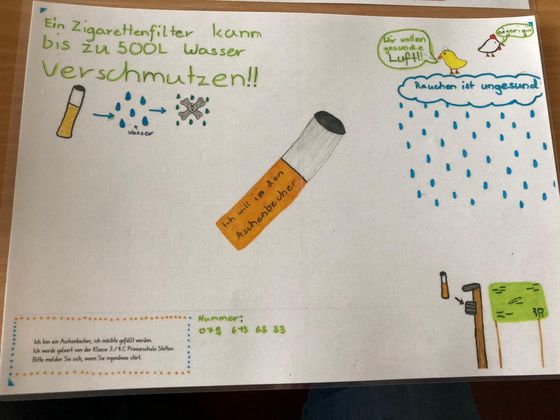 Ein Zigarettenfilter kann
bis zu 500L Wasser
Verschmutzen!!
Wasser
Wir wollen
gesunde
Luft!!!
Rauchen ist ungesund
Ich will in den
Aschenbecher
Ich bin ein Aschenbecher, ich möchte gefüllt werden.
Ich werde geleert von der Klasse 3./4.C Primarschule Stetten.
Bitte melden Sie sich, wenn Sie irgendwas stört.
Nummer:
079 695 65 53